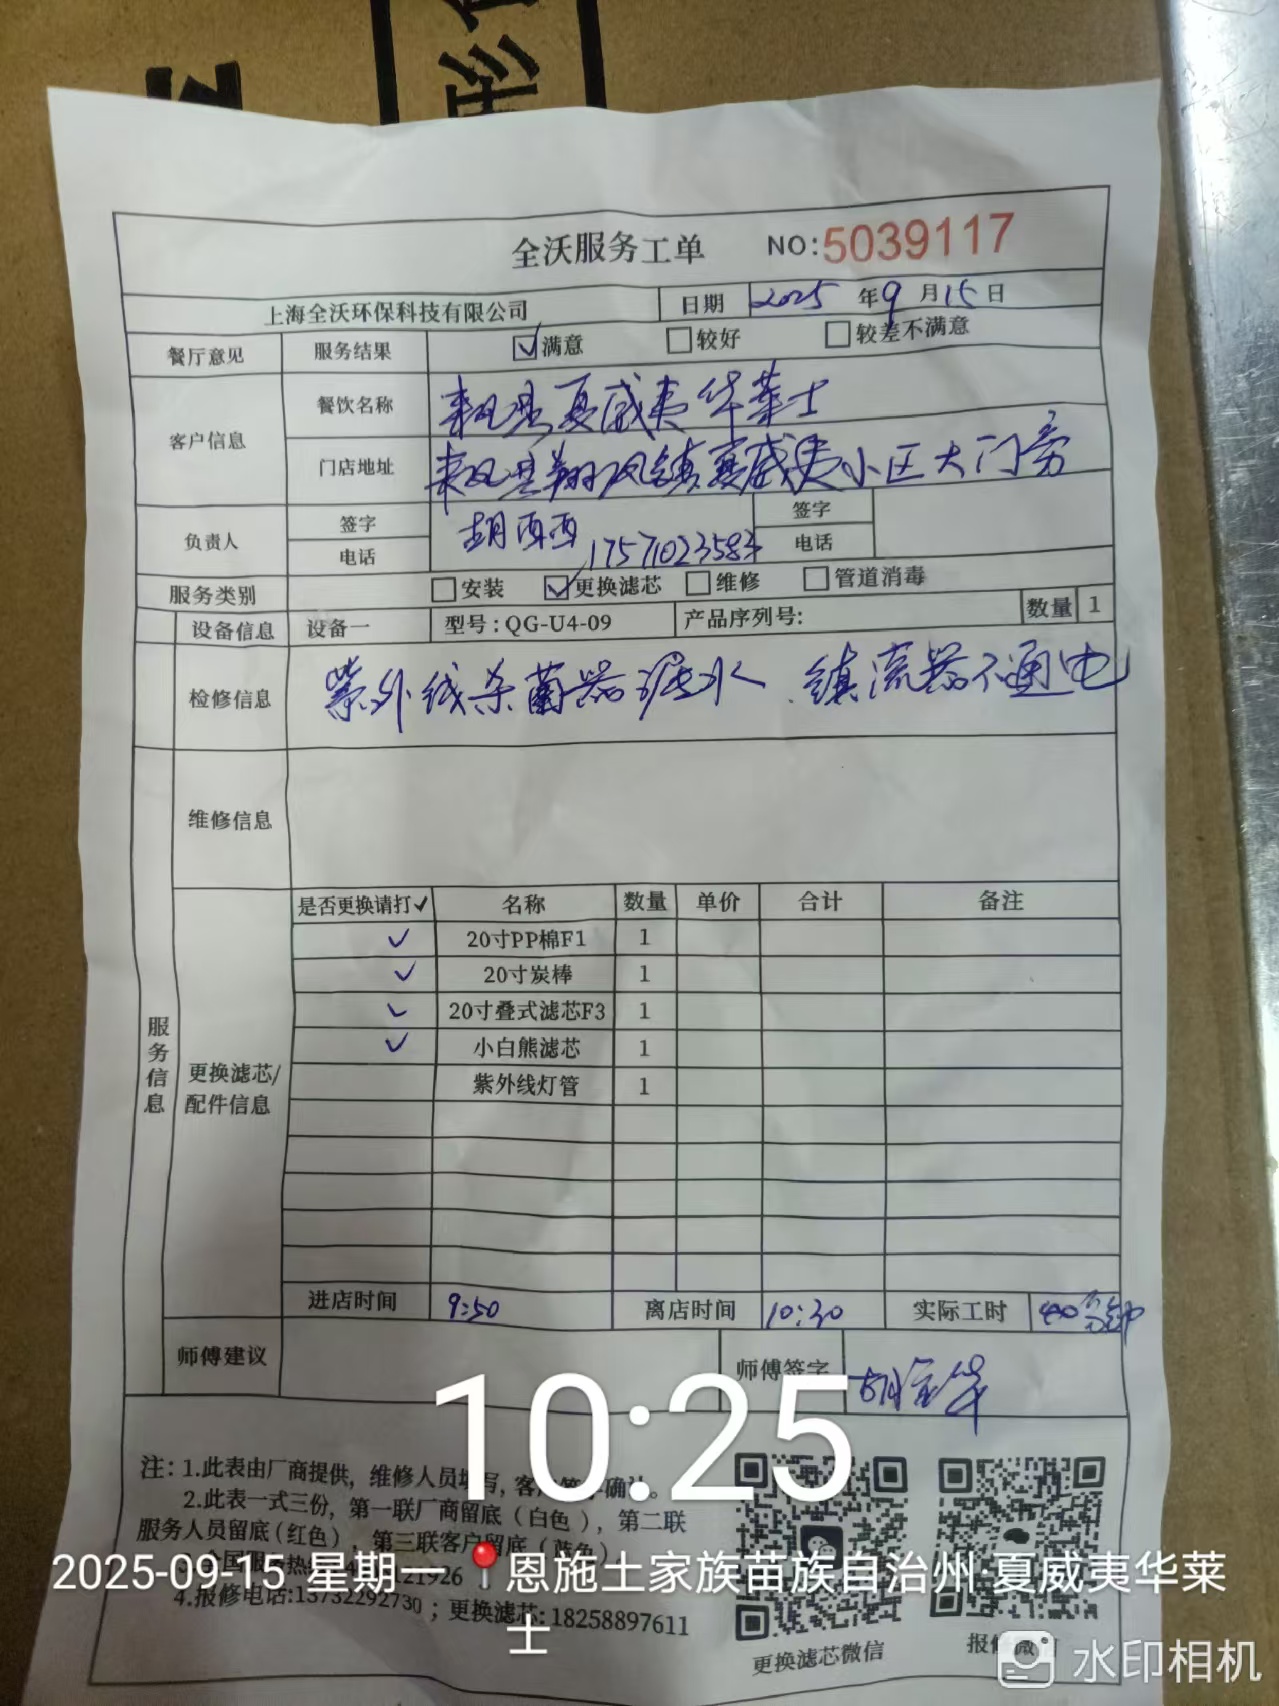 全沃服务工单 NO:5039117
上海全沃环保科技有限公司 日期 2025年9月15日
餐厅意见 服务结果 ☑满意 □较好 □较差不满意
客户信息 餐饮名称 来凤县夏威夷华莱士
门店地址 来凤县翔凤镇夏威夷小区大门旁
负责人 签字 胡西西 签字
电话 17571023583 电话
服务类别 □安装 ☑更换滤芯 □维修 □管道消毒
设备信息 设备一 型号:QG-U4-09 产品序列号: 数量 1
检修信息 紫外线杀菌器漏水、镇流器不通电
维修信息
服务信息
更换滤芯/配件信息
是否更换请打✓ 名称 数量 单价 合计 备注
✓ 20寸PP棉F1 1
✓ 20寸炭棒 1
✓ 20寸叠式滤芯F3 1
✓ 小白熊滤芯 1
紫外线灯管 1
进店时间 9:50 离店时间 10:30 实际工时 40分钟
师傅建议 师傅签字
10:25
注:1.此表由厂商提供,维修人员填写,客户签字确认。
2.此表一式三份,第一联厂商留底(白色),第二联
服务人员留底(红色),第三联客户留底(蓝色)
21926
4.报修电话:13732292730;更换滤芯:18258897611
更换滤芯微信
报修微信
2025-09-15 星期一 恩施土家族苗族自治州·夏威夷华莱士
水印相机